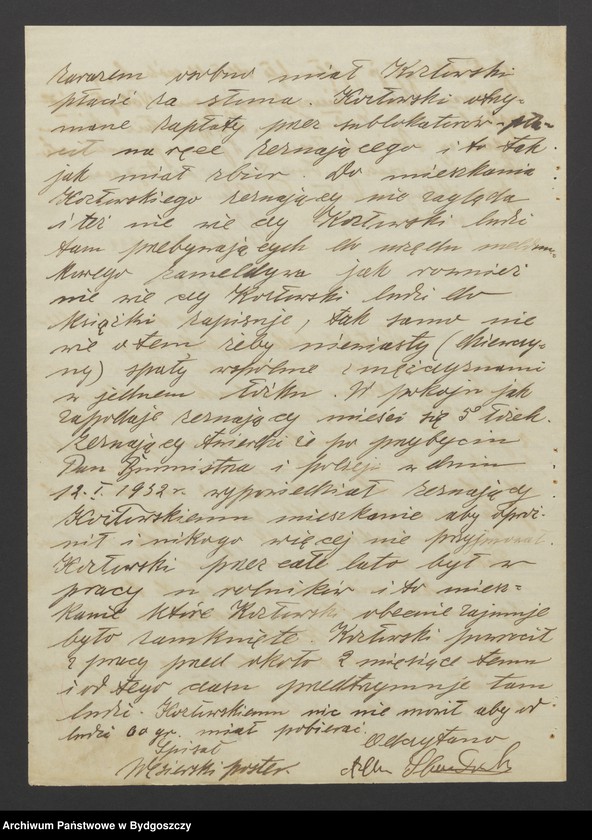 zarazem osobno miał Kozłowski
płacić za słoma. Kozłowski otrzy-
mane zapłaty przez sublokatorów pła-
cił na ręce zeznającego i to tak
jak miał zbiór. Do mieszkania
Kozłowskiego zeznający nie zagląda
i też nie wie czy Kozłowski ludzi
tam przebywających do urzędu meldun-
kowego zameldywa jak również
nie wie czy Kozłowski ludzi do
książki zapisuje, tak samo nie
wie o tem żeby niewiasty (dziewczy-
ny) spały wspólnie z mężczyznami
w jednem łóżku. W pokoju jak
zapodaje zeznający mieści się 5 łóżek.
Zeznający twierdzi że po przybyciu
Pan Burmistrza i policji w dniu
12.I.1932 r. wypowiedział zeznający
Kozłowskiemu mieszkanie aby opróż-
nił i nikogo więcej nie przyjmował.
Kozłowski przez całe lato był w
pracy u rolników i to miesz-
kanie które Kozłowski obecnie zajmuje
było zamknięte. Kozłowski powrócił
z pracy przed około 2 miesiące temu
i od tego czasu przedtrzymuje tam
ludzi. Kozłowskiemu nic nie mówił aby od
ludzi 60 gr. miał pobierać.
Odczytano
Spisał
Węsierski poster.
Archiwum Państwowe w Bydgoszczy